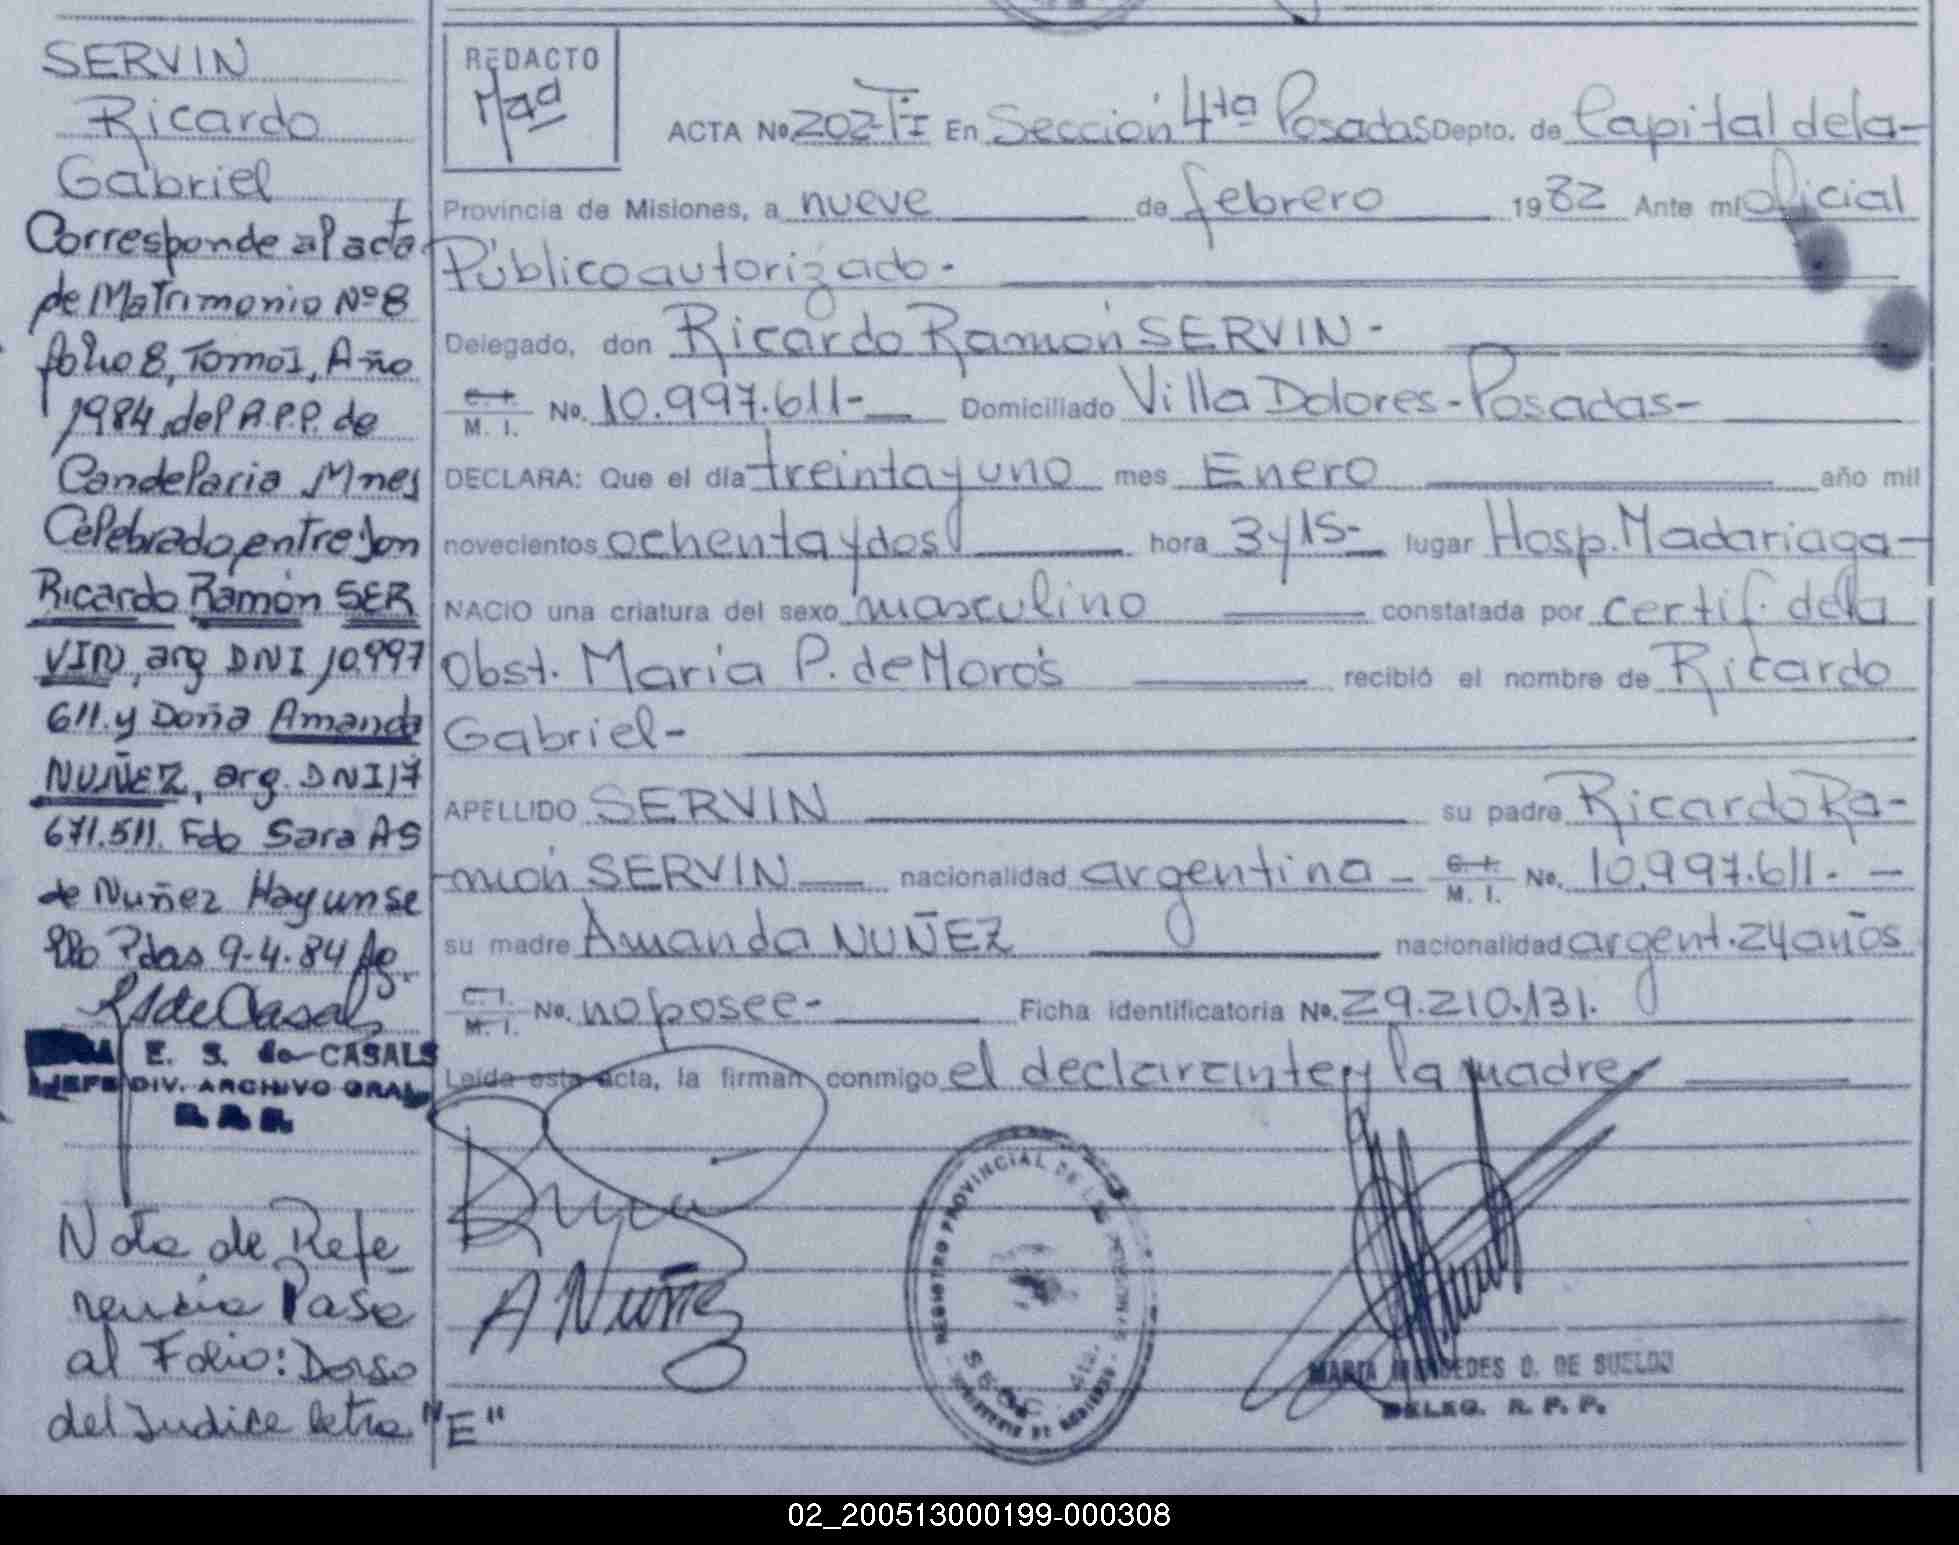 SERVIN
Ricardo
Gabriel
Corresponde al acta
de Matrimonio Nº 8
folio 8, Tomo I, Año
1984, del R.P.P. de
Candelaria Mnes
Celebrado, entre Don
Ricardo Ramón SER
VIN, arg DNI 10.997
611. y Doña Amanda
NUÑEZ, arg. DNI 17
671.511. Fdo Sara A S
de Nuñez Hay un se
llo Pdas 9-4-84
E. S. de CASALS
JEFE DIV. ARCHIVO GRAL
Nota de Refe
rencia Pasa
al Folio: Dorso
del Indice letra "E"
REDACTO
ACTA No 202-TI En Sección 4ta Posadas Depto. de Capital de la-
Provincia de Misiones, a nueve de febrero 1982 Ante mí oficial
Público autorizado-
Delegado, don Ricardo Ramón SERVIN-
C. I. M. I. No. 10.997.611- Domiciliado Villa Dolores-Posadas-
DECLARA: Que el día treinta y uno mes Enero año mil
novecientos ochenta y dos hora 3 y 15- lugar Hosp. Madariaga-
NACIO una criatura del sexo masculino constatada por certif. de la
Obst. María P. de Moros recibió el nombre de Ricardo
Gabriel-
APELLIDO SERVIN su padre Ricardo Ra-
món SERVIN nacionalidad argentina - C. I. M. I. No. 10.997.611. -
su madre Amanda NUÑEZ nacionalidad argent. 24 años
C. I. M. I. No. no posee- Ficha identificatoria No. 29.210.131.
Leída esta acta, la firman conmigo el declarante y la madre
A Nuñez
REGISTRO PROVINCIAL DE LAS PERSONAS
MARIA MERCEDES D. DE SUELDO
DELEG. R. P. P.
02_200513000199-000308